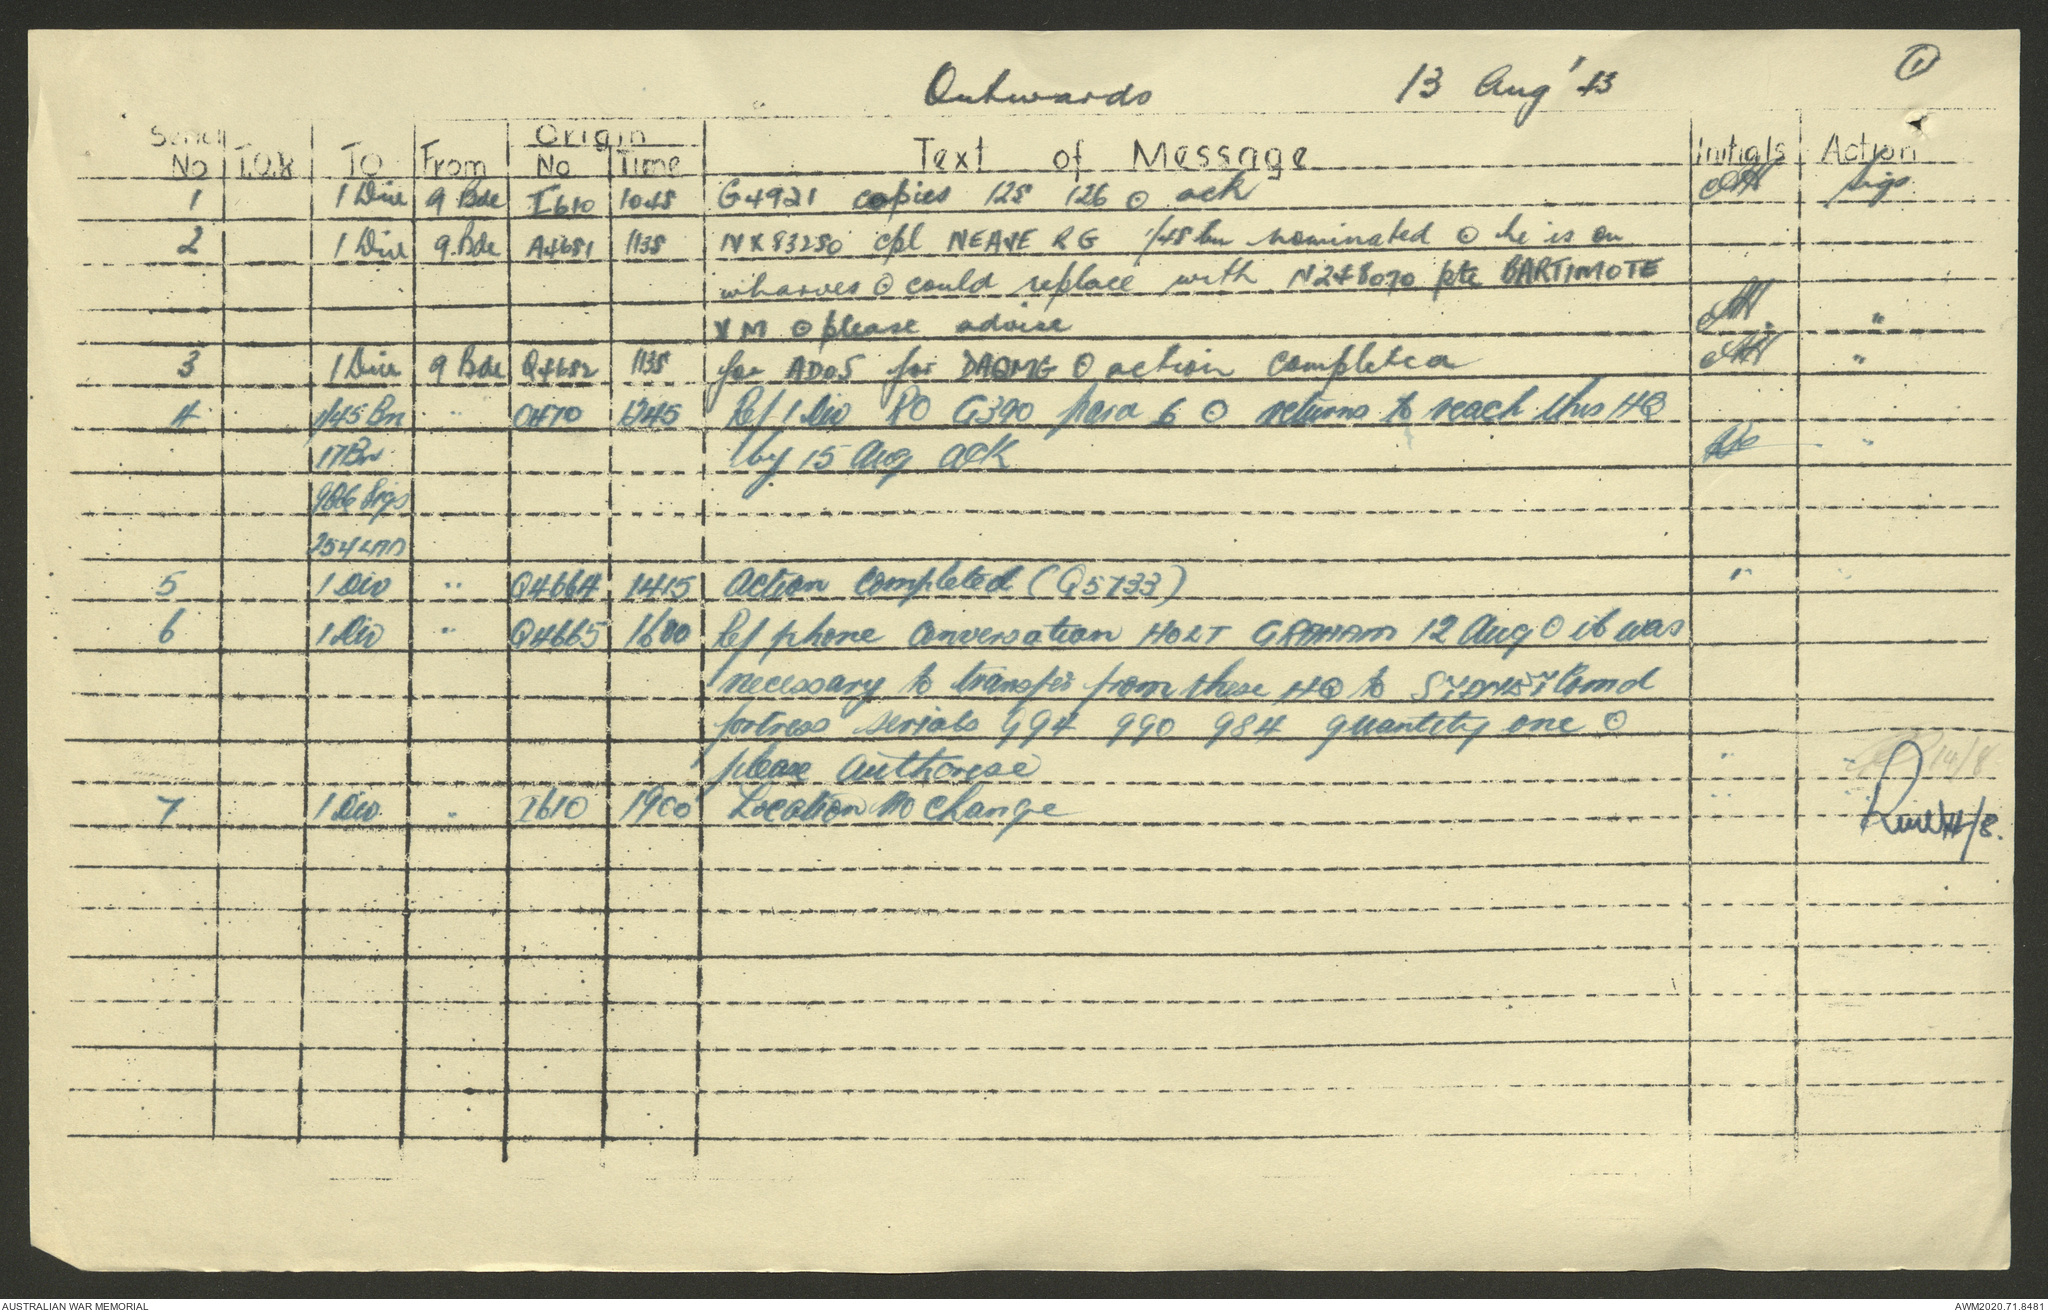 Outwards 13 Aug '43 1
Serial No T.O.R TO From Origin No Time Text of Message Initials Action
1 1 Div 9 Bde I610 1045 G4921 copies 125 126 ⊙ ack Sigs
2 1 Div 9 Bde A4681 1135 NX83250 Cpl NEAVE RG 1/45 bn nominated ⊙ he is on
wharves ⊙ could replace with N248070 pte BARTIMOTE
M ⊙ please advise "
3 1 Div 9 Bde Q4682 1135 for ADOS for DAQMG ⊙ action completed "
4 1/45 Bn " O470 1245 Ref 1 Div RO G390 para 6 ⊙ returns to reach this HQ
17 Bn by 15 Aug ack "
Sigs
254 LAD
5 1 Div " Q4664 1415 Action completed (Q5733) "
6 1 Div " Q4665 1600 Ref phone conversation HOLT GRAHAM 12 Aug ⊙ it was
necessary to transfer from these HQ to SYDNEY Comd
fortress serials 994 990 984 quantity one ⊙
please authorise " " 14/8
7 1 Div " I610 1900 Location no change " " 14/8.
AUSTRALIAN WAR MEMORIAL AWM2020.71.8481